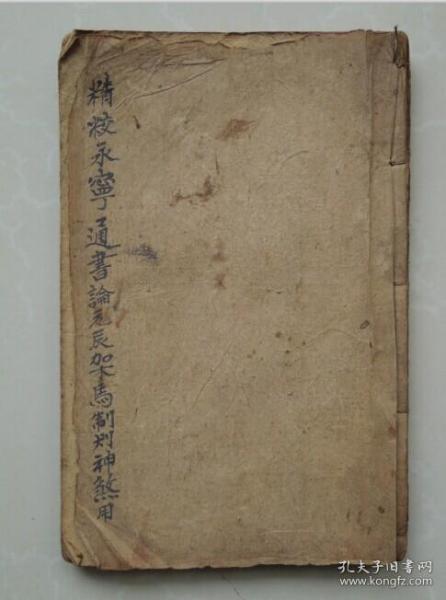 精校永寧通書論元辰架馬制刘神煞用
孔夫子旧书网
www.kongfz.com